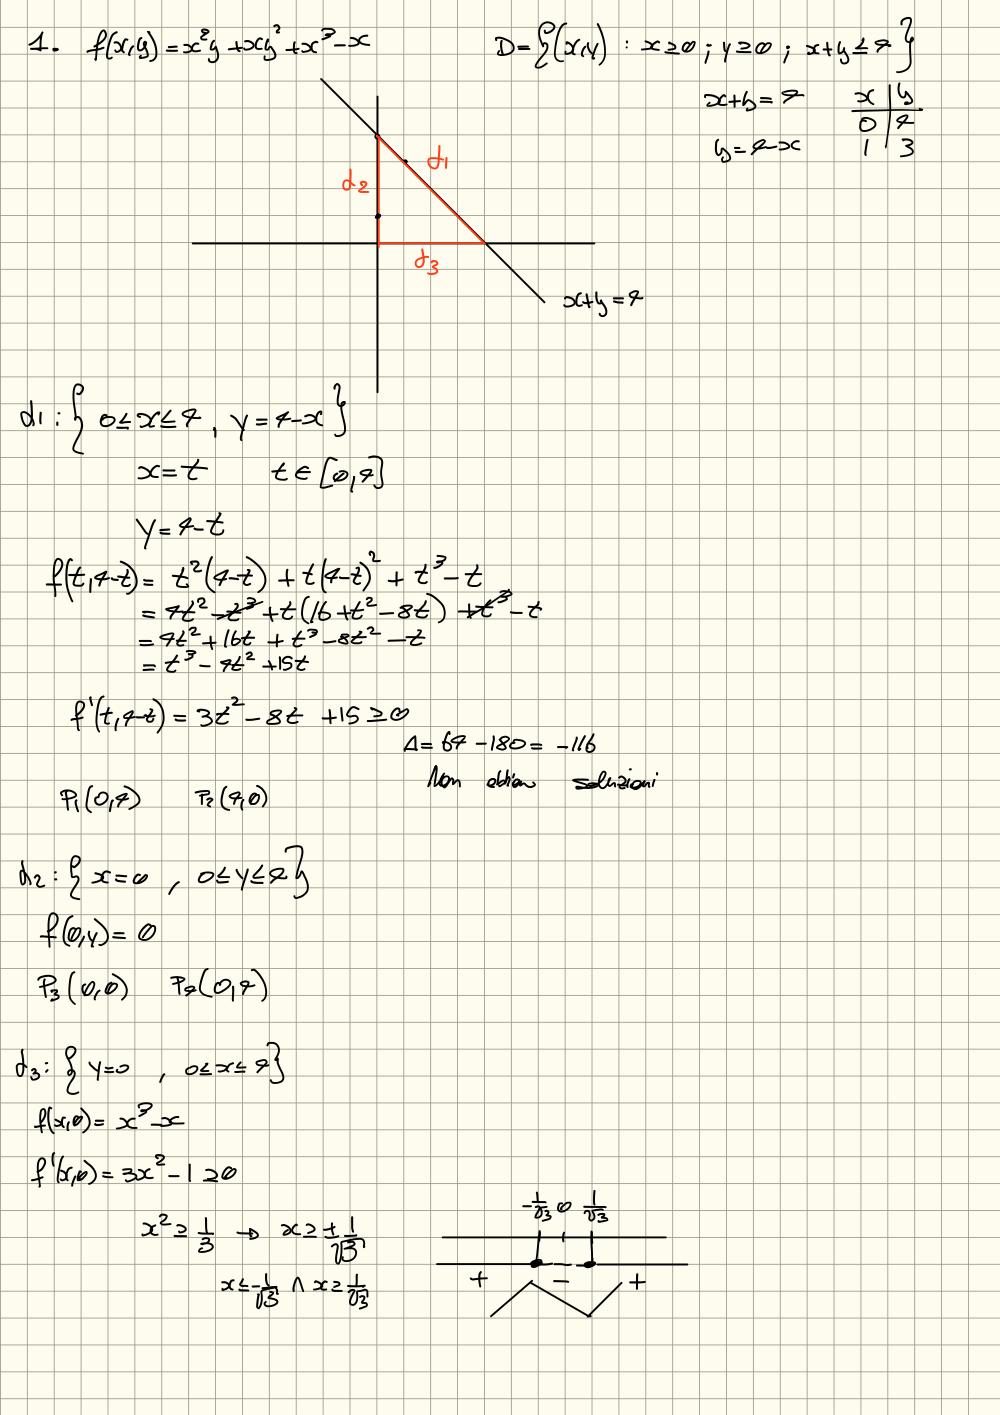 1. f(x,y) = x²y + xy² + x³ - x    D = {(x,y) : x ≥ 0 ; y ≥ 0 ; x+y ≤ 4}
x+y = 4    x | y
0 | 4
y = 4-x    1 | 3
d1
d2
d3
x+y = 4
d1 : { 0 ≤ x ≤ 4 , y = 4-x }
x = t    t ∈ [0,4]
y = 4-t
f(t,4-t) = t²(4-t) + t(4-t)² + t³ - t
= 4t² - t³ + t(16 + t² - 8t) + t³ - t
= 4t² + 16t + t³ - 8t² - t
= t³ - 4t² + 15t
f'(t,4-t) = 3t² - 8t + 15 ≥ 0
Δ = 64 - 180 = -116
Non abbiamo soluzioni
P1(0,4)    P2(4,0)
d2 : { x = 0 , 0 ≤ y ≤ 4 }
f(0,y) = 0
P3(0,0)    P4(0,4)
d3 : { y = 0 , 0 ≤ x ≤ 4 }
f(x,0) = x³ - x
f'(x,0) = 3x² - 1 ≥ 0
-1/√3 0 1/√3
x² ≥ 1/3 → x ≥ ± 1/√3
+ - +
x ≤ -1/√3 ∧ x ≥ 1/√3